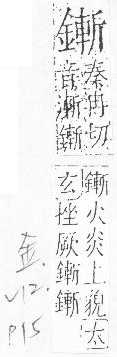 鏩
秦冉切
音漸鏩
鏩火炎上貌太
玄挫厥鏩鏩
金.
V12.
P15